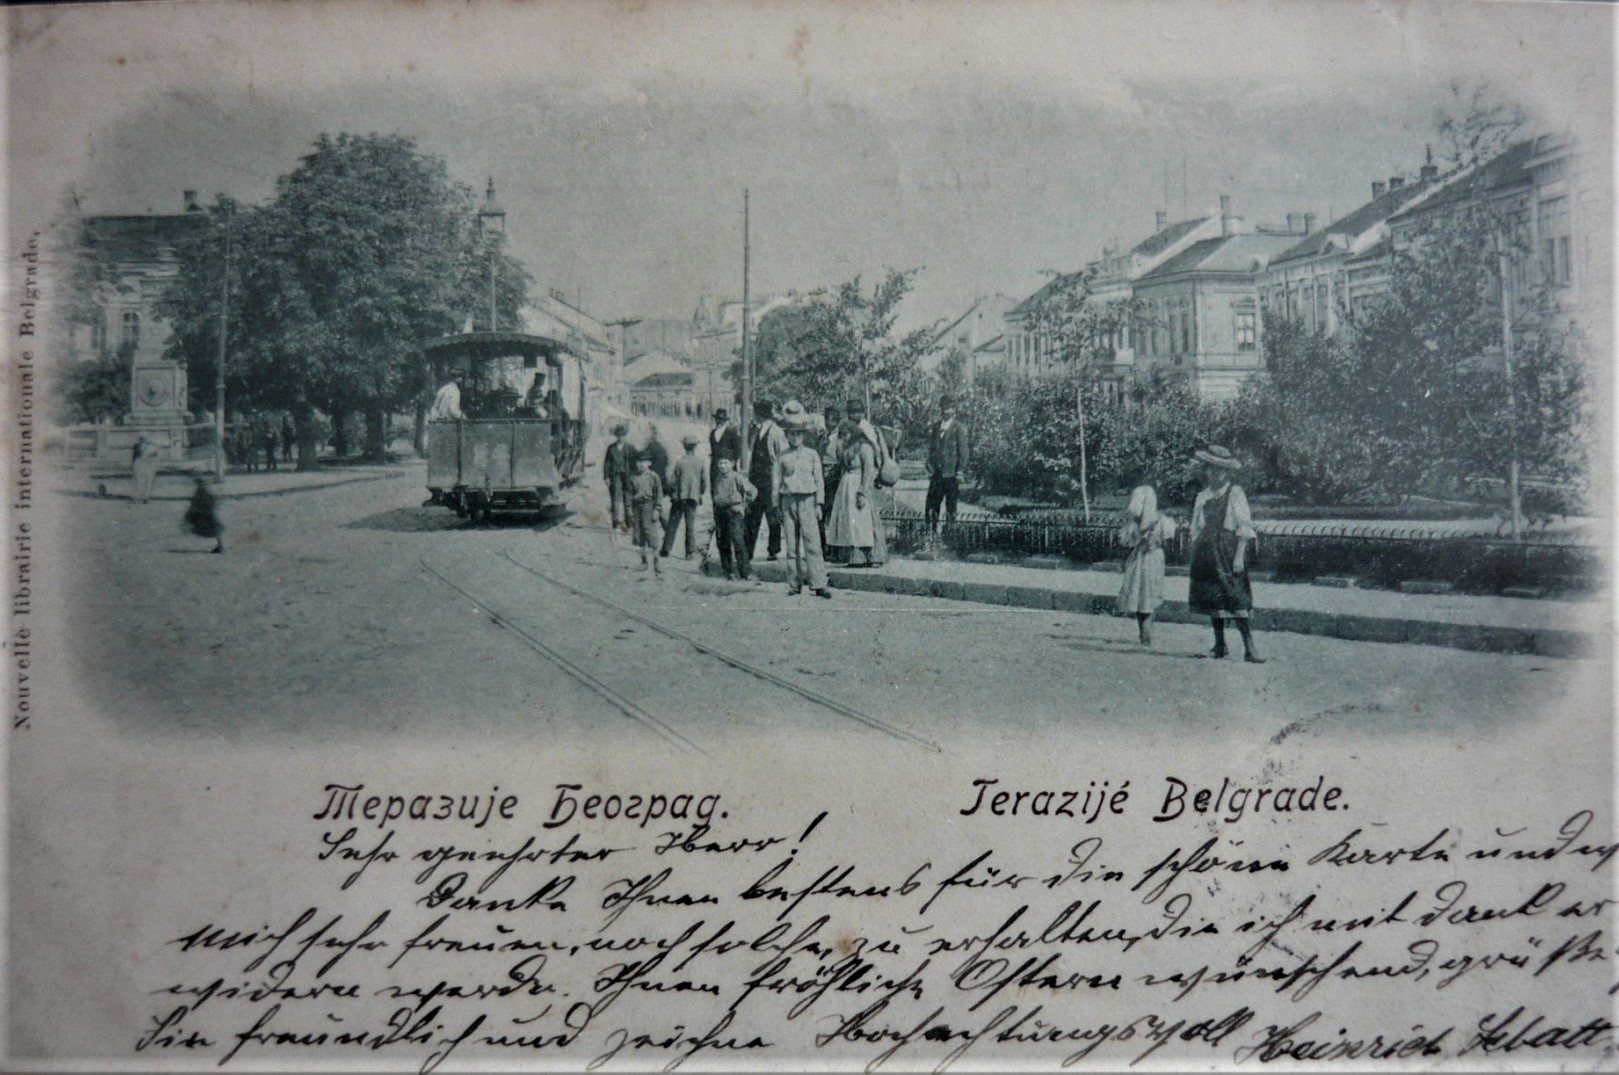 Nouvelle librairie internationale Belgrade.
Теразије Београд.
Terazijé Belgrade.
Sehr geehrter Herr!
Danke Ihnen bestens für die schöne Karte und
mich sehr freuen, noch solche, zu erhalten, die ich mit Dank er
widern werde. Ihnen fröhliche Ostern wünschend, grüße
Sie freundlich und zeichne Hochachtungsvoll Heinrich